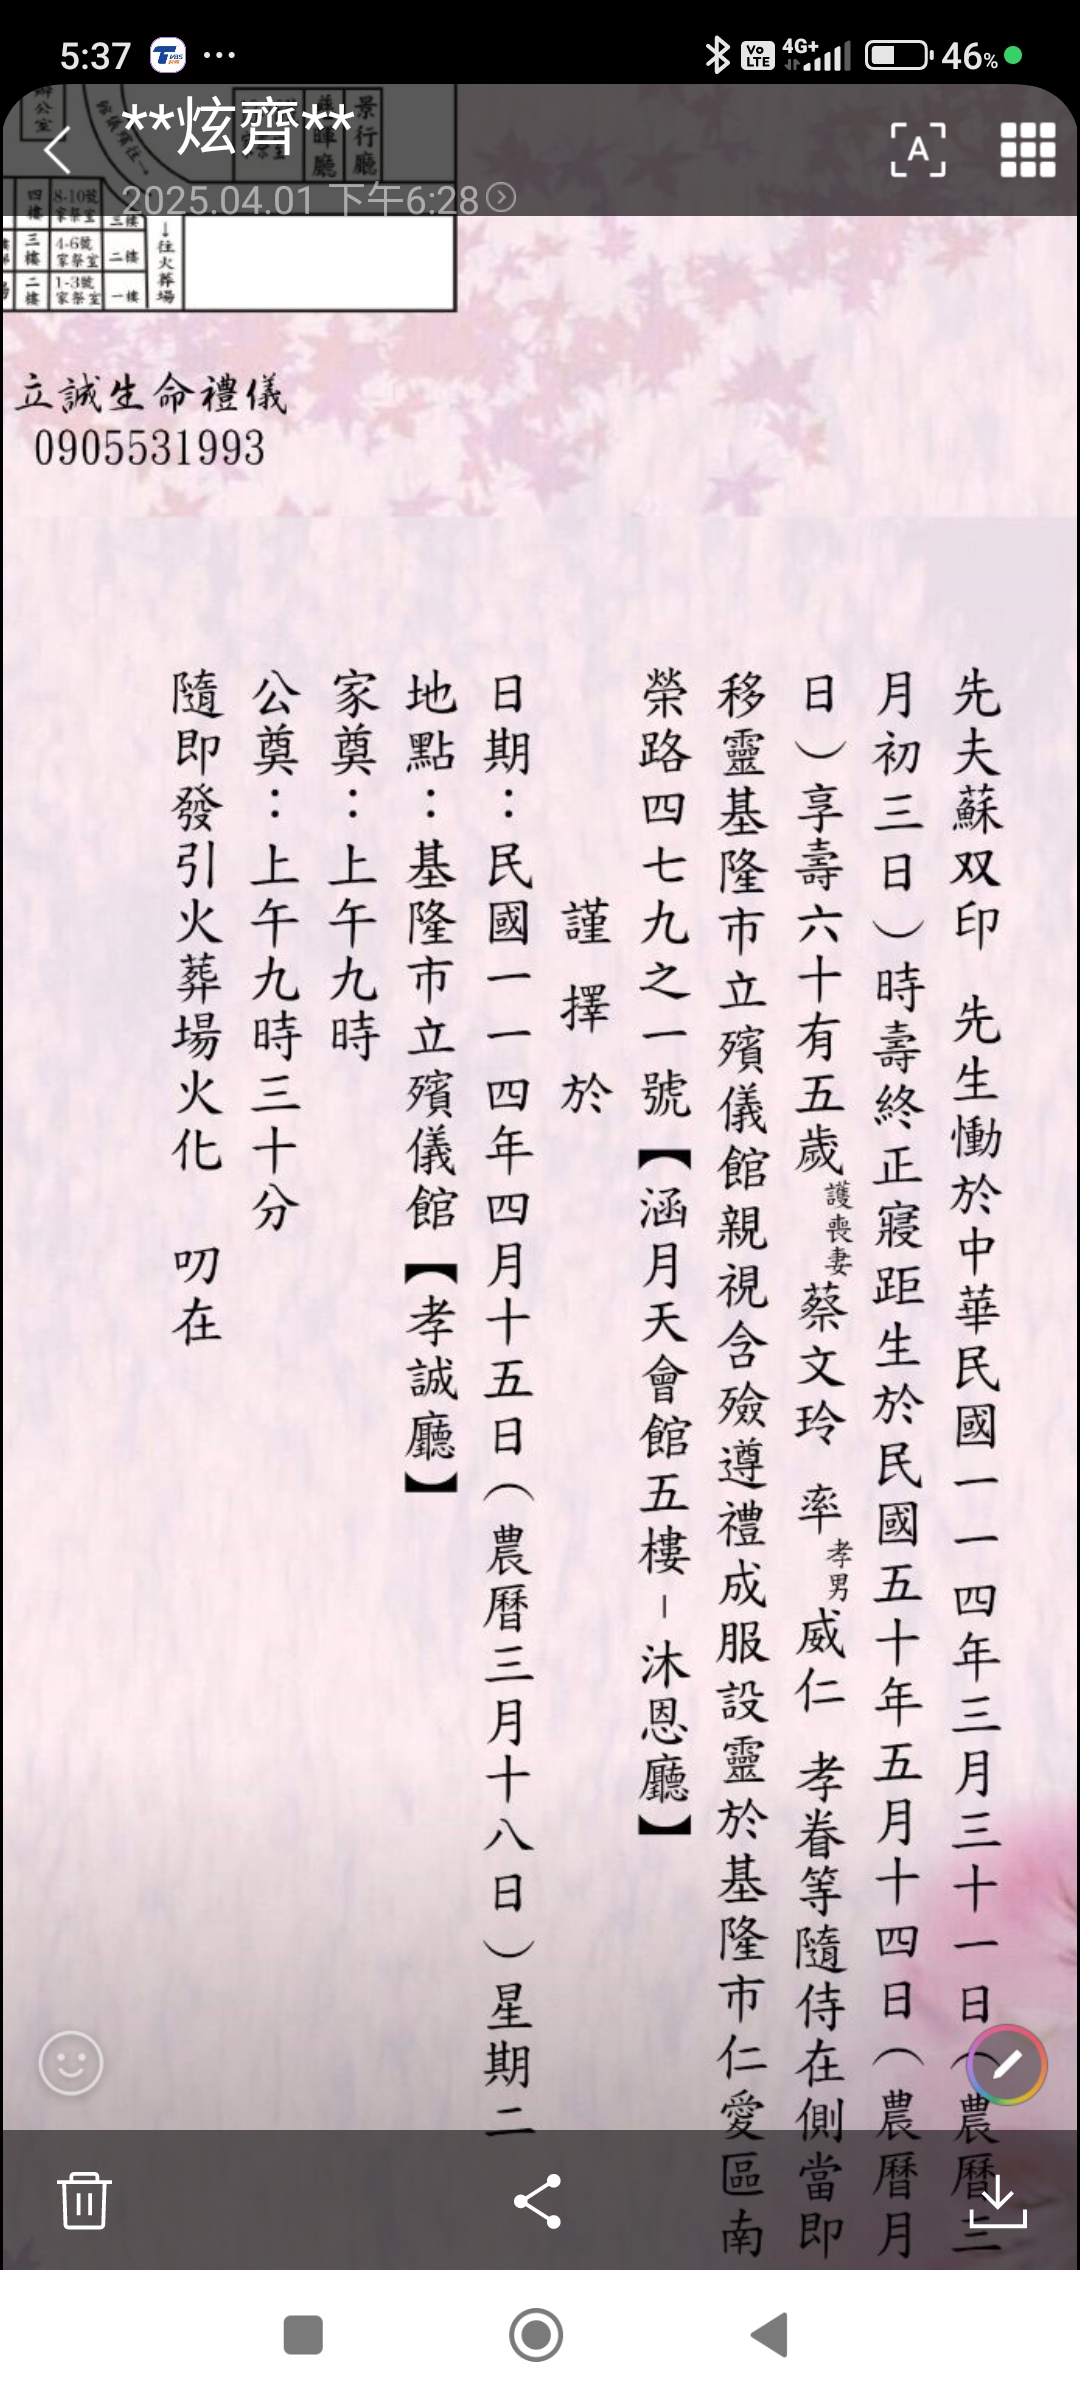 5:37
Vo LTE
4G+
46%
**炫齊**
2025.04.01 下午6:28
A
公室
景行廳
暉廳
四樓
8-10號家祭室
三樓
三樓
4-6號家祭室
二樓
二樓
1-3號家祭室
一樓
↓往火葬場
立誠生命禮儀
0905531993
先夫蘇双印 先生慟於中華民國一一四年三月三十一日（農曆三
月初三日）時壽終正寢距生於民國五十年五月十四日（農曆月
日）享壽六十有五歲護喪妻蔡文玲 率孝男威仁 孝眷等隨侍在側當即
移靈基隆市立殯儀館親視含殮遵禮成服設靈於基隆市仁愛區南
榮路四七九之一號【涵月天會館五樓–沐恩廳】
謹擇於
日期：民國一一四年四月十五日（農曆三月十八日）星期二
地點：基隆市立殯儀館【孝誠廳】
家奠：上午九時
公奠：上午九時三十分
隨即發引火葬場火化 叨在